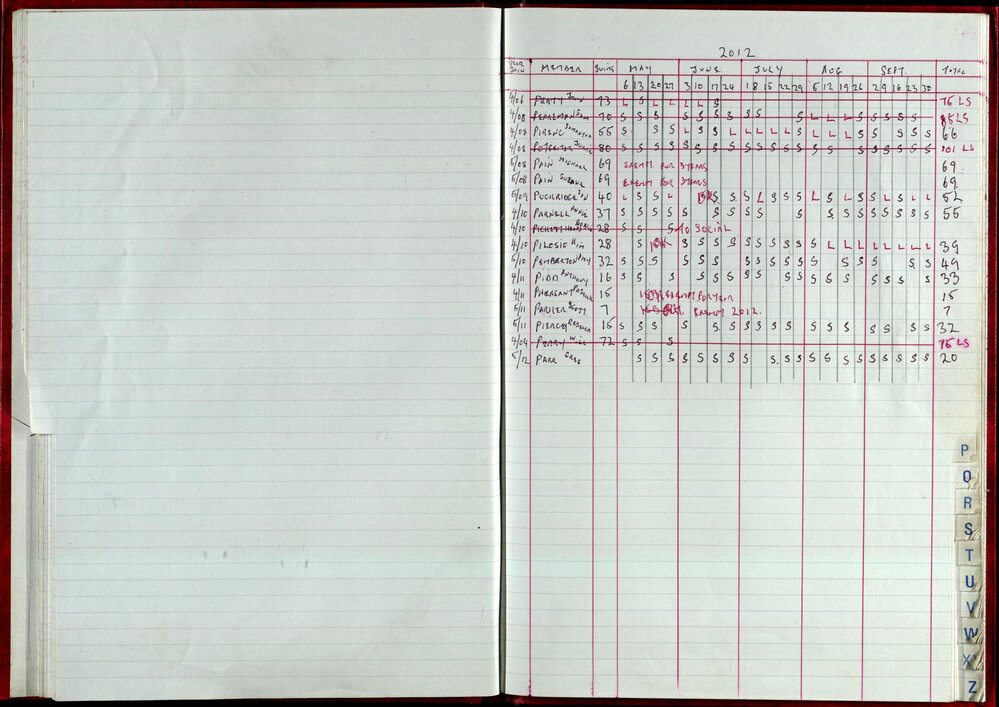 2012
YEAR JOIN MEMBER SWIMS MAY JUNE JULY AUG SEPT. TOTAL
6 13 20 27 3 10 17 24 1 8 15 22 29 5 12 19 26 2 9 16 23 30
4/06 PERTY JOHN 73 L S L L L L S 75 LS
4/08 PEARLMAN 70 S S S S S S S S S S S L L L S S S S S 85 LS
4/08 PIRENC 55 S S S L S S L L L L L S L L L S S S S S 66
4/08 80 S S S S S S S S S S S S S S S S S S S S S 101 LS
5/08 PAIN MICHAEL 69 EXEMPT FOR 3 YEARS 69
5/08 PAIN SUZANE 69 EXEMPT FOR 3 YEARS 69
5/09 PUCKRIDGE JON 40 L S S L S S S L S S S L S L S S L S L L 52
4/10 PARNELL 37 S S S S S S S S S S S S S S S S S S S 55
4/10 28 S S S TO SOCIAL
4/10 PILOSIO KIM 28 S S S S S S S S S S S L L L L L L L 39
5/10 PEMBERTON AMY 32 S S S S S S S S S S S S S S S S S 49
4/11 PIDD ANTHONY 16 S S S S S S S S S S S S S S S S S 33
4/11 PHEASANT 15 EXEMPT FOR YEAR 15
5/11 PARKER SCOTT 7 EXEMPT 2012. 7
5/11 PIERCEY REBECCA 16 S S S S S S S S S S S S S S S S 32
4/04 PERRY WILL 72 S S S 75 LS
5/12 PARR GREG S S S S S S S S S S S S S S S S S S 20
P
Q
R
S
T
U
V
W
X
Z